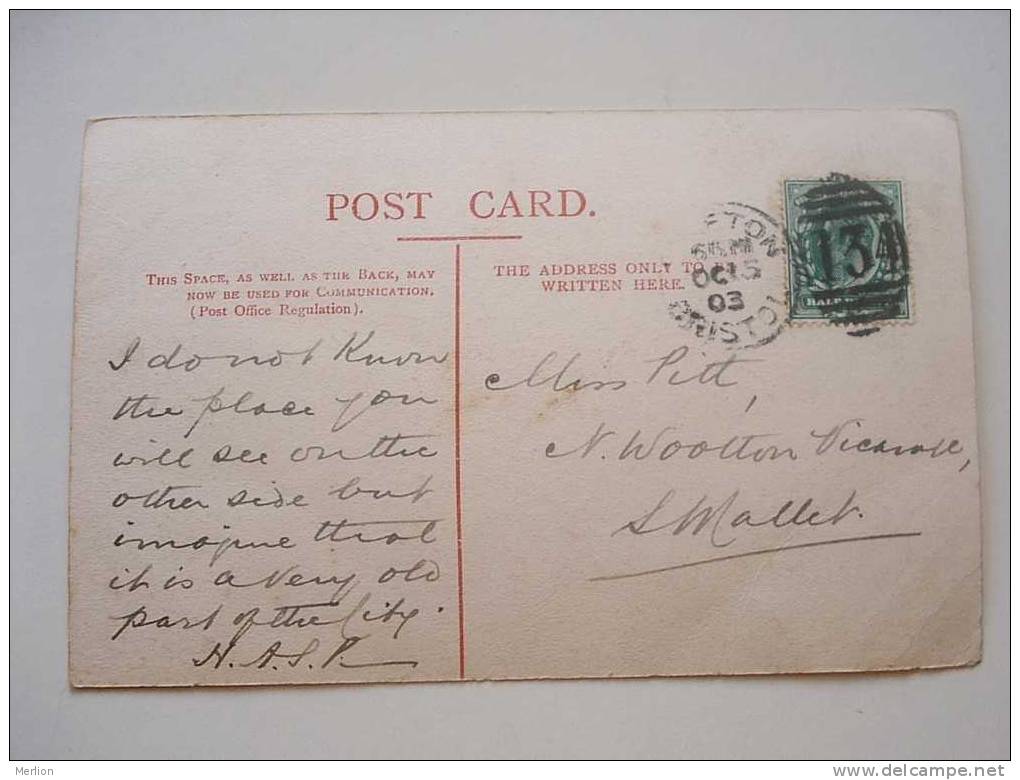 POST CARD.
THIS SPACE, AS WELL AS THE BACK, MAY
NOW BE USED FOR COMMUNICATION.
(Post Office Regulation).
THE ADDRESS ONLY TO BE
WRITTEN HERE.
I do not know
the place you
will see on the
other side but
imagine that
it is a very old
part of the City.
H. A. S. P.
Miss Pitt,
N. Wootton Vicarage,
S Mallet.
FTON
OC 15
03
BRISTOL
134
HALF
Merlion
www.delcampe.net